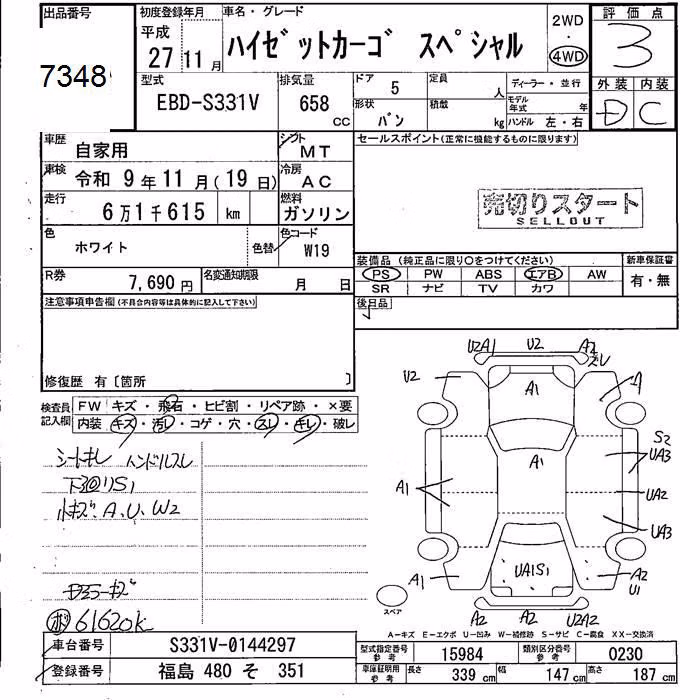 出品番号 初度登録年月 車名・グレード 2WD 評価点
7348 平成 27 11月 ハイゼットカーゴ スペシャル ・ 4WD 3
型式 排気量 ドア 5 定員 人 ディーラー・並行 外装 内装
EBD-S331V 658 cc 形状 バン 積載 kg モデル年式 年 ハンドル 左・右 D C
車歴 自家用 シフト MT セールスポイント(正常に機能するものに限ります)
車検 令和 9年11月(19日) 冷房 AC
走行 6万1千615 km 燃料 ガソリン 売切りスタート
SELLOUT
色 ホワイト 色替 色コード W19
装備品(純正品に限り○をつけてください) 新車保証書
R券 7,690円 名変通知期限 月 日 PS PW ABS エアB AW 有・無
SR ナビ TV カワ
注意事項申告欄(不具合内容等は具体的に記入して下さい) 後日品
修復歴 有〔箇所 〕
検査員記入欄 FW キズ・飛石・ヒビ割・リペア跡・×要
内装・キズ・汚レ・コゲ・穴・スレ・キレ・破レ
シートキレ ハンドルスレ
下回りS1
小キズ A、U、W2
キズ
61620k
U2A1 U2 A2 ズレ
U2 A1 A
A1 A1 S2 UA3
UA2
UA3
A1 UA1S1 A2 U1
スペア A2 A2 U2A2
A-キズ E-エクボ U-凹み W-補修跡 S-サビ C-腐食 XX-交換済
車台番号 S331V-0144297 型式指定番号 参考 15984 類別区分番号 参考 0230
登録番号 福島 480 そ 351 車庫証明用 参考 長さ 339 cm 幅 147 cm 高さ 187 cm